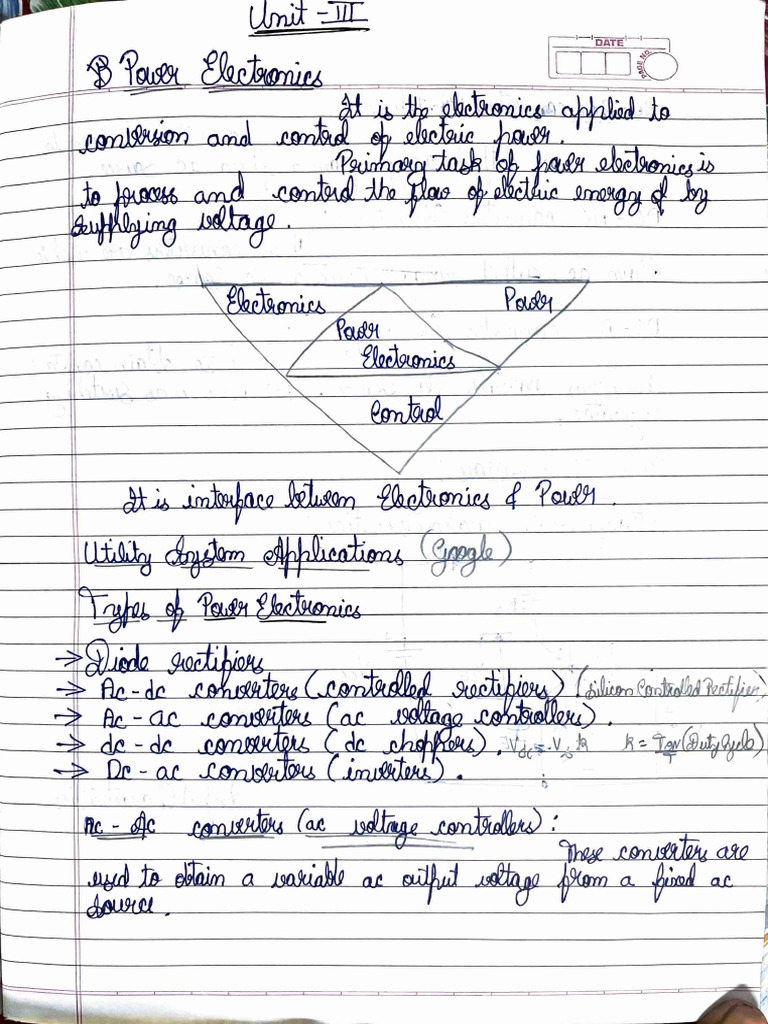 Unit - III
DATE
PAGE NO.
Power Electronics
It is the electronics applied to
conversion and control of electric power.
Primary task of power electronics is
to process and control the flow of electric energy of by
supplying voltage.
Electronics
Power
Power
Electronics
Control
It is interface between Electronics & Power.
Utility System Applications (Google)
Types of Power Electronics
→ Diode rectifiers
→ Ac-dc converters (controlled rectifiers) (Silicon Controlled Rectifier)
→ Ac-ac converters (ac voltage controllers).
→ dc-dc converters (dc choppers). Vdc = Vs k k = TON/T (Duty Cycle)
→ Dc-ac converters (inverters).
Ac - Ac converters (ac voltage controllers):
These converters are
used to obtain a variable ac output voltage from a fixed ac
source.